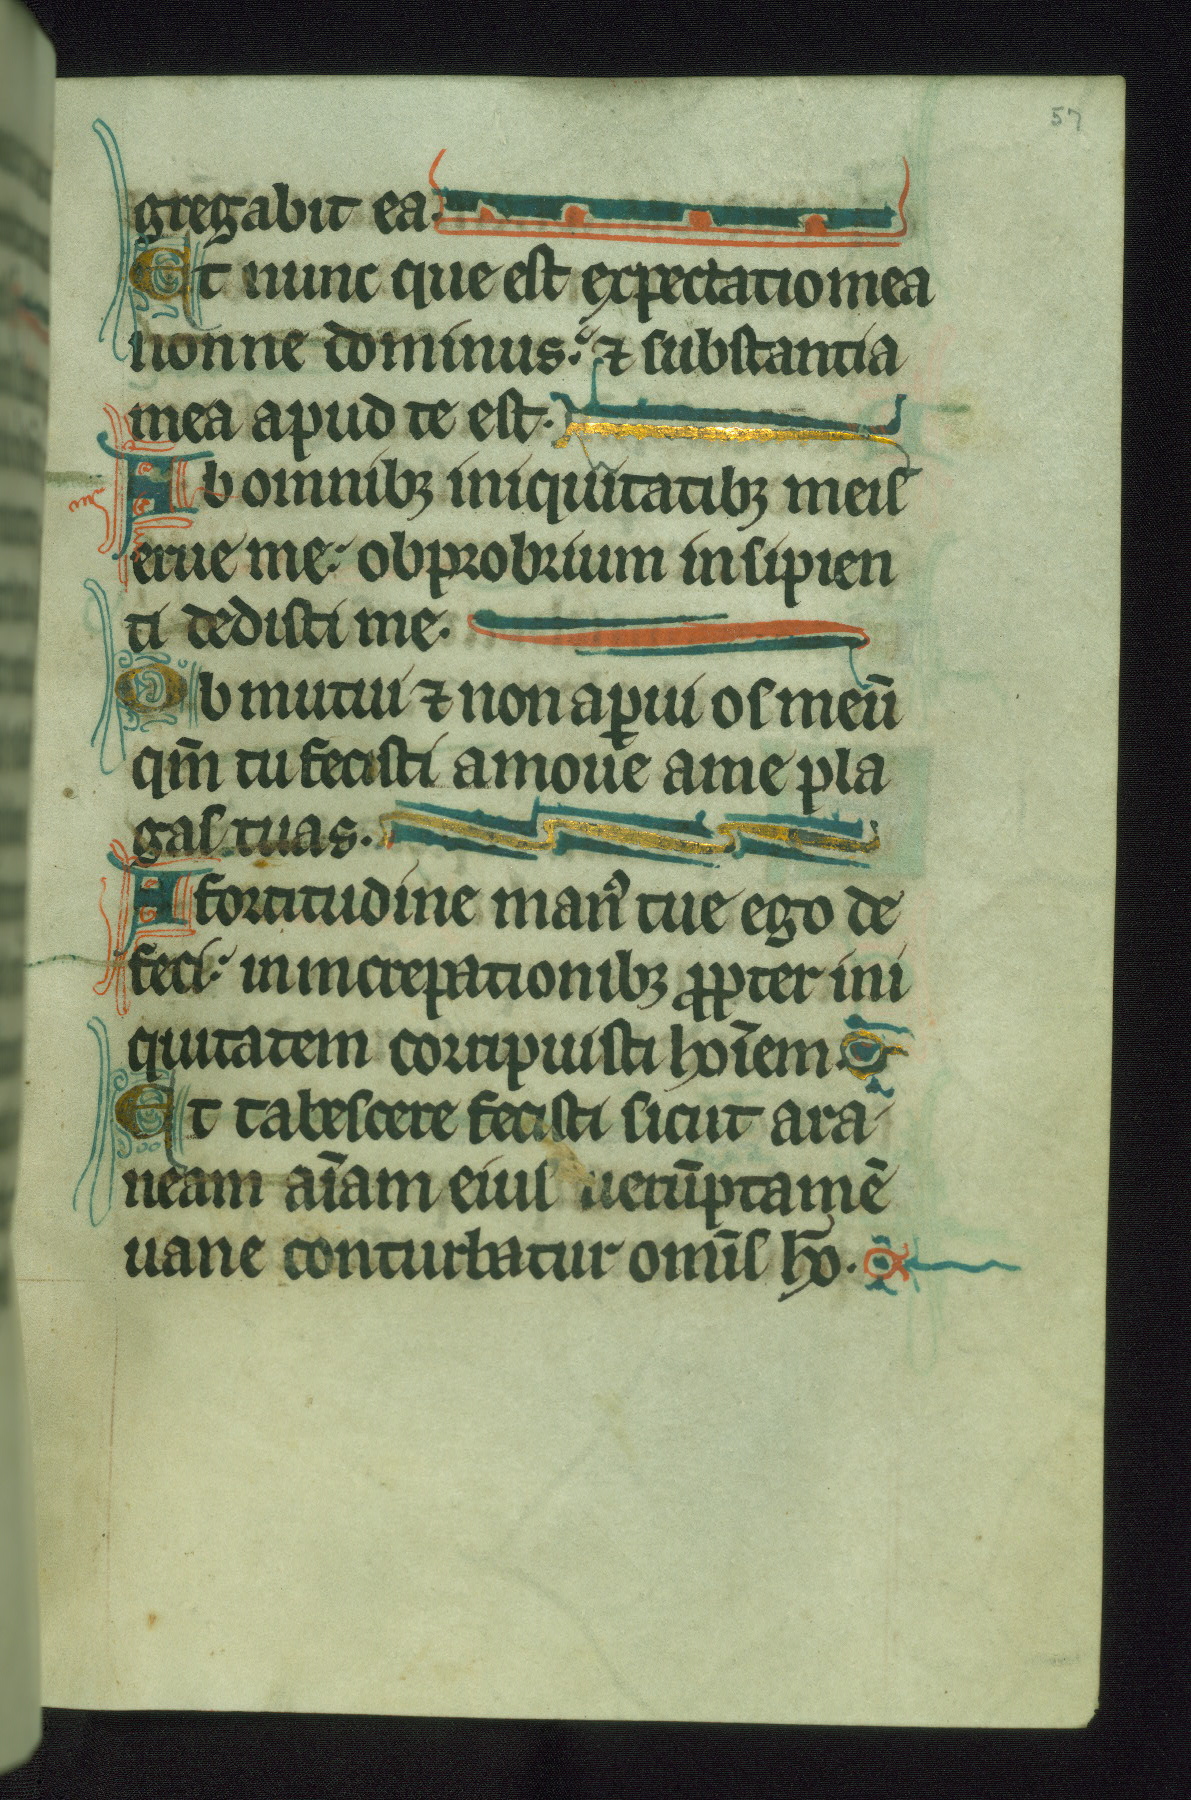 57
gregabit ea.
Et nunc que est expectatio mea
nonne dominus: ⁊ substantia
mea apud te est.
Ab omnibꝫ iniquitatibꝫ meis
erue me: obprobrium insipien
ti dedisti me.
Obmutui ⁊ non aꝑui os meū
qm̄ tu fecisti amoue a me pla
gas tuas.
A fortitudine manꝰ tue ego de
feci: in increpationibꝫ ꝓpter ini
quitatem corripuisti hoīem.
Et tabescere fecisti sicut ara
neam aīam eius uerūptamē
uane conturbatur omīs hō.